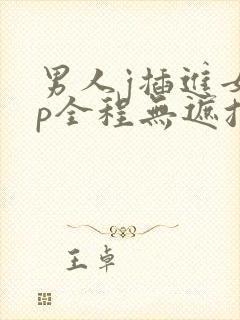 男人j插進
p全程無遮
王卓